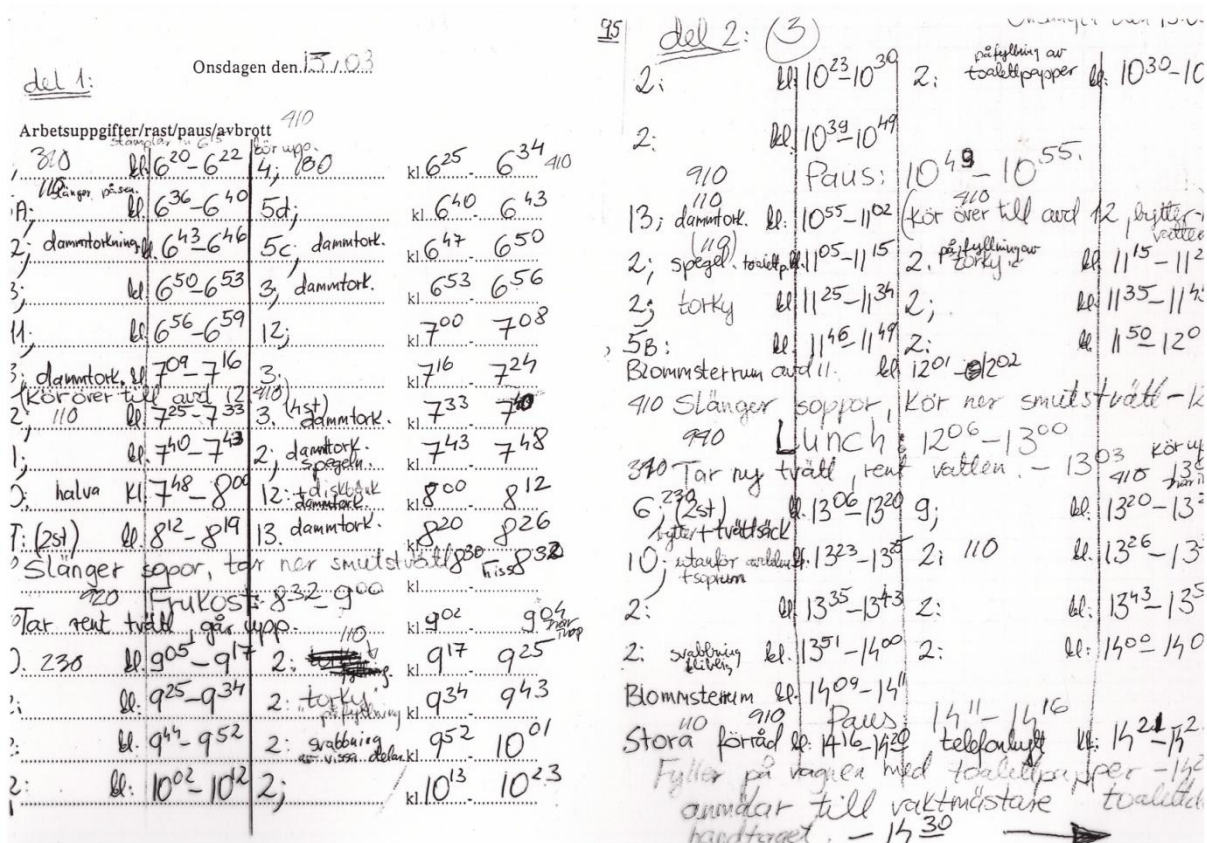 del 1:
Onsdagen den 15/03
Arbetsuppgifter/rast/paus/avbrott 910
stämplar in 6¹⁵ kör upp.
310 kl. 6²⁰-6²² 4; 100 kl 6²⁵ - 6³⁴ 910
110 slänger påsen.
A; kl. 6³⁶-6⁴⁰ 5d; kl 6⁴⁰ - 6⁴³
2; dammtorkning kl. 6⁴³-6⁴⁶ 5c; dammtork. kl 6⁴⁷ - 6⁵⁰
3; kl 6⁵⁰-6⁵³ 3; dammtork. kl 6⁵³ - 6⁵⁶
11; kl. 6⁵⁶-6⁵⁹ 12; kl 7⁰⁰ - 7⁰⁸
3; dammtork. kl 7⁰⁹-7¹⁶ 3; kl 7¹⁶ - 7²⁴
(Kör över till avd 12 910)
2; 110 kl. 7²⁵-7³³ 3. (4st) dammtork. kl 7³³ - 7⁴⁰
1; kl. 7⁴⁰-7⁴³ 2; dammtork. spegeln. kl 7⁴³ - 7⁴⁸
halva kl 7⁴⁸-8⁰⁰ 12: + diskbänk dammtork. kl 8⁰⁰ - 8¹²
(2st) kl. 8¹²-8¹⁹ 13. dammtork. kl 8²⁰ - 8²⁶
Slänger sopor, tar ner smutstvätt 8³⁰ hiss 8³²
920 Frukost: 8³²-9⁰⁰
Tar rent tvätt, går upp. kl 9⁰² - 9⁰⁴
110
230 kl. 9⁰⁵-9¹⁷ 2: kl 9¹⁷ - 9²⁵
2; kl. 9²⁵-9³⁴ 2: "torky" påfyllning kl 9³⁴ - 9⁴³
2: kl. 9⁴⁴-9⁵² 2: svabbning av vissa delar kl 9⁵² - 10⁰¹
2: kl: 10⁰²-10¹² 2; kl 10¹³ - 10²³
95 del 2: (3)
2: kl: 10²³-10³⁰ 2: påfyllning av toalettpapper kl: 10³⁰-10
2: kl. 10³⁹-10⁴⁹
910 Paus: 10⁴⁹-10⁵⁵.
110 910
13; dammtork. kl: 10⁵⁵-11⁰² (kör över till avd 12, bytter vatten
(119)
2; spegel. toalettp. kl. 11⁰⁵-11¹⁵ 2. påfyllning av "torky" kl 11¹⁵-11²
2; torky kl 11²⁵-11³⁴ 2; kl: 11³⁵-11⁴
5B: kl 11⁴⁶-11⁴⁹ 2: kl 11⁵⁰-12⁰
Blommsterrum avd 11. kl 12⁰¹-12⁰²
910 Slänger soppor, kör ner smutstvätt -12
940 Lunch: 12⁰⁶-13⁰⁰
310 Tar ny tvätt, rent vatten. - 13⁰³ kör up
910
6; 230 (2st) kl. 13⁰⁶-13²⁰ 9; kl. 13²⁰-13
bytter + tvättsäck
10; utanför avdelni + soprum kl. 13²³-13²⁵ 2; 110 kl. 13²⁶-13
2: kl 13³⁵-13⁴³ 2: kl: 13⁴³-13⁵
2: svabbning kl. 13⁵¹-14⁰⁰ 2: kl: 14⁰⁰-14⁰
Blommsterrum kl. 14⁰⁹-14¹¹
110 910 Paus: 14¹¹-14¹⁶
Stora förråd kl: 14¹⁶-14²⁰, telefonlyft kl: 14²¹-14²
Fyller på vagnen med toalettpapper -14²
anmälar till vaktmästare toalett
handtaget. - 14³⁰